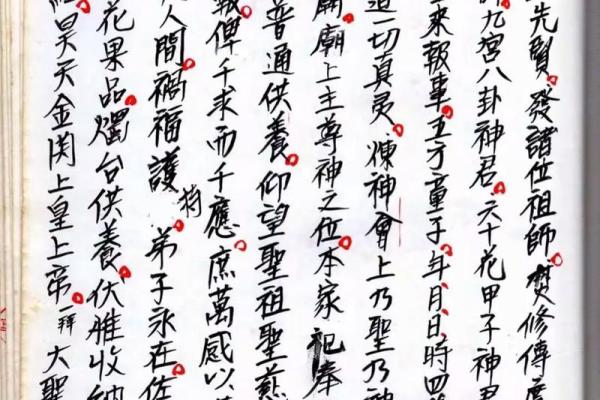 先賢。發諸位祖師。焚修傳度
九宮八卦神君。六十花甲子神君
來報事。五方童子。年。月。日。時四
一切真灵。煉神會上乃聖乃神
廟上主尊神之位。本家祀奉
普通供養。仰望聖祖聖慈
報俾千求而千應。庶萬感以
人間禍福護持。弟子永在佐
花果品。燭台供養。伏雅收納
昊天金阕上皇上帝。一拜大聖